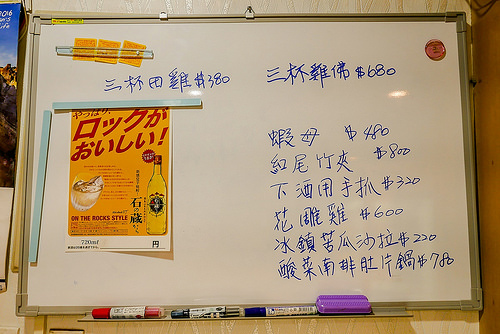 2016
三杯田雞 $380
三杯雞佛 $680
やっぱり、
ロックが
おいしい!
石の蔵から
ON THE ROCKS STYLE
720ml
円
蝦母 $480
紅尾竹夾 $800
下酒用手扒 $320
花雕雞 $600
冰鎮苦瓜沙拉 $220
酸菜南排肚片鍋 $780